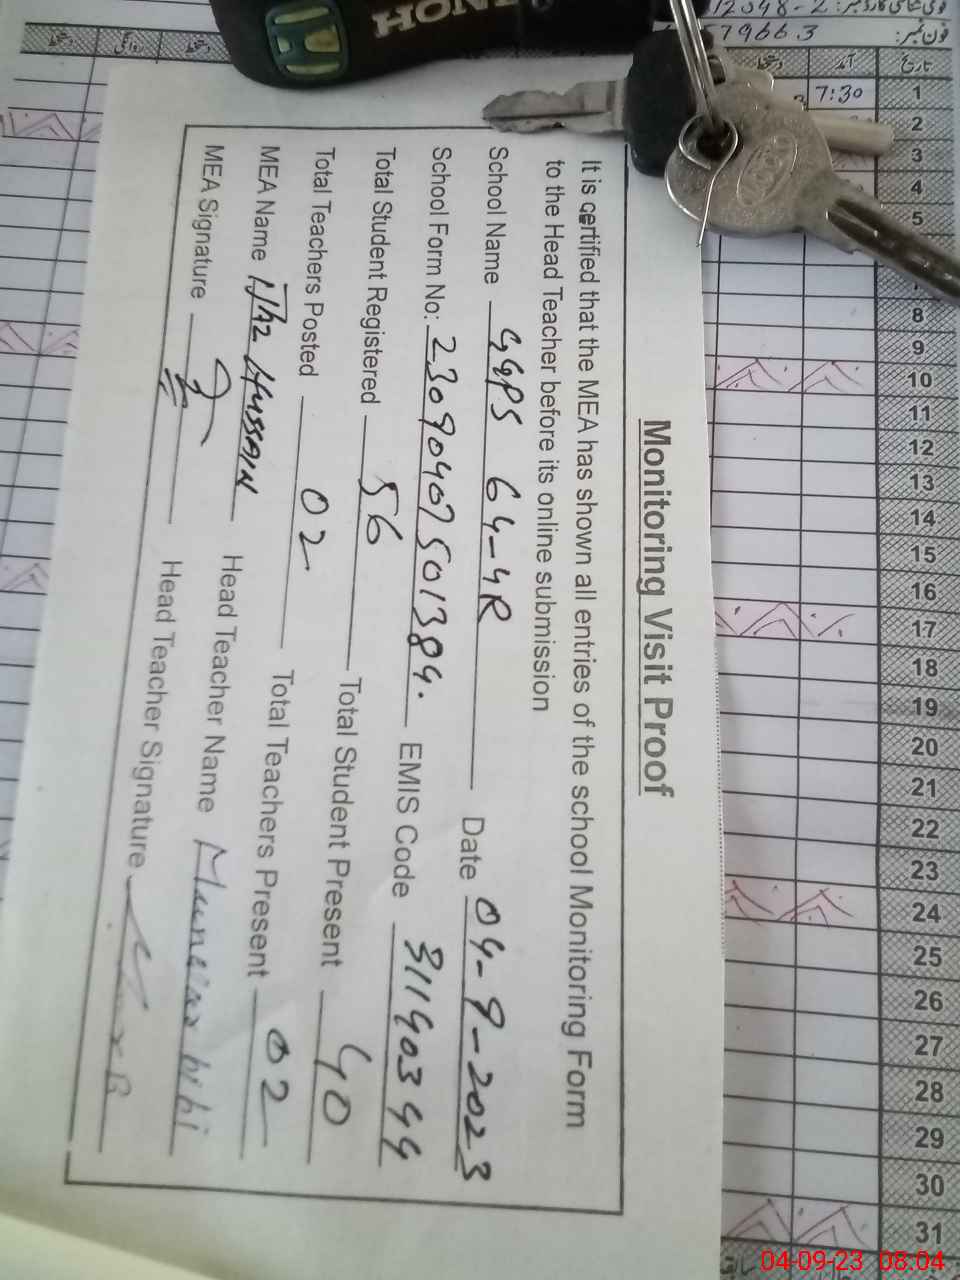 Monitoring Visit Proof
It is certified that the MEA has shown all entries of the school Monitoring Form
to the Head Teacher before its online submission
School Name GGPS 64-4R Date 04-9-2023
School Form No: 2309040750 1384. EMIS Code 31190344
Total Student Registered 56 Total Student Present 40
Total Teachers Posted 02 Total Teachers Present 02
MEA Name HUSSAIN Head Teacher Name bibi
MEA Signature Head Teacher Signature
HONDA
فون نمبر: 79663
تاریخ آمد دستخط
1 7:30
2
3
4
5
7
8
9
10
11
12
13
14
15
16
17
18
19
20
21
22
23
24
25
26
27
28
29
30
31
04-09-23 08:04